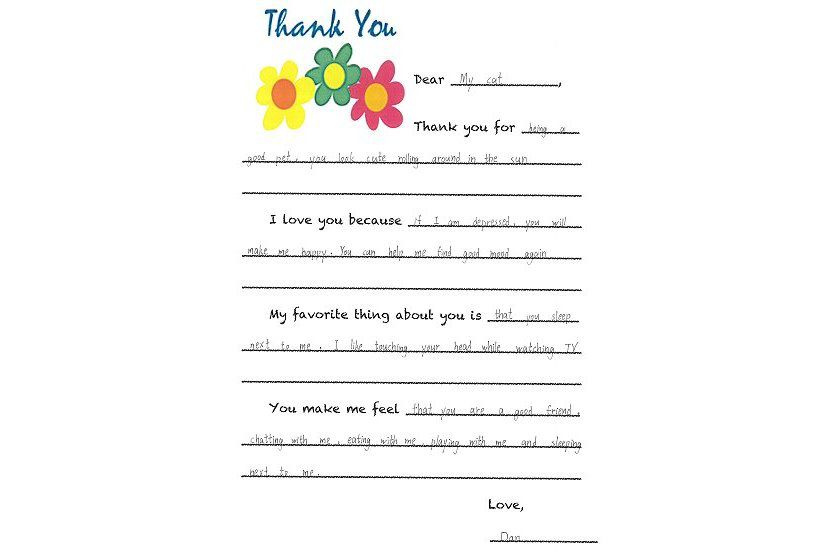 Thank You
Dear My cat,
Thank you for being a
good pet, you look cute rolling around in the sun
I love you because if I am depressed, you will
make me happy. You can help me find good mood again
My favorite thing about you is that you sleep
next to me. I like touching your head while watching TV
You make me feel that you are a good friend,
chatting with me, eating with me, playing with me and sleeping
next to me.
Love,
Dan